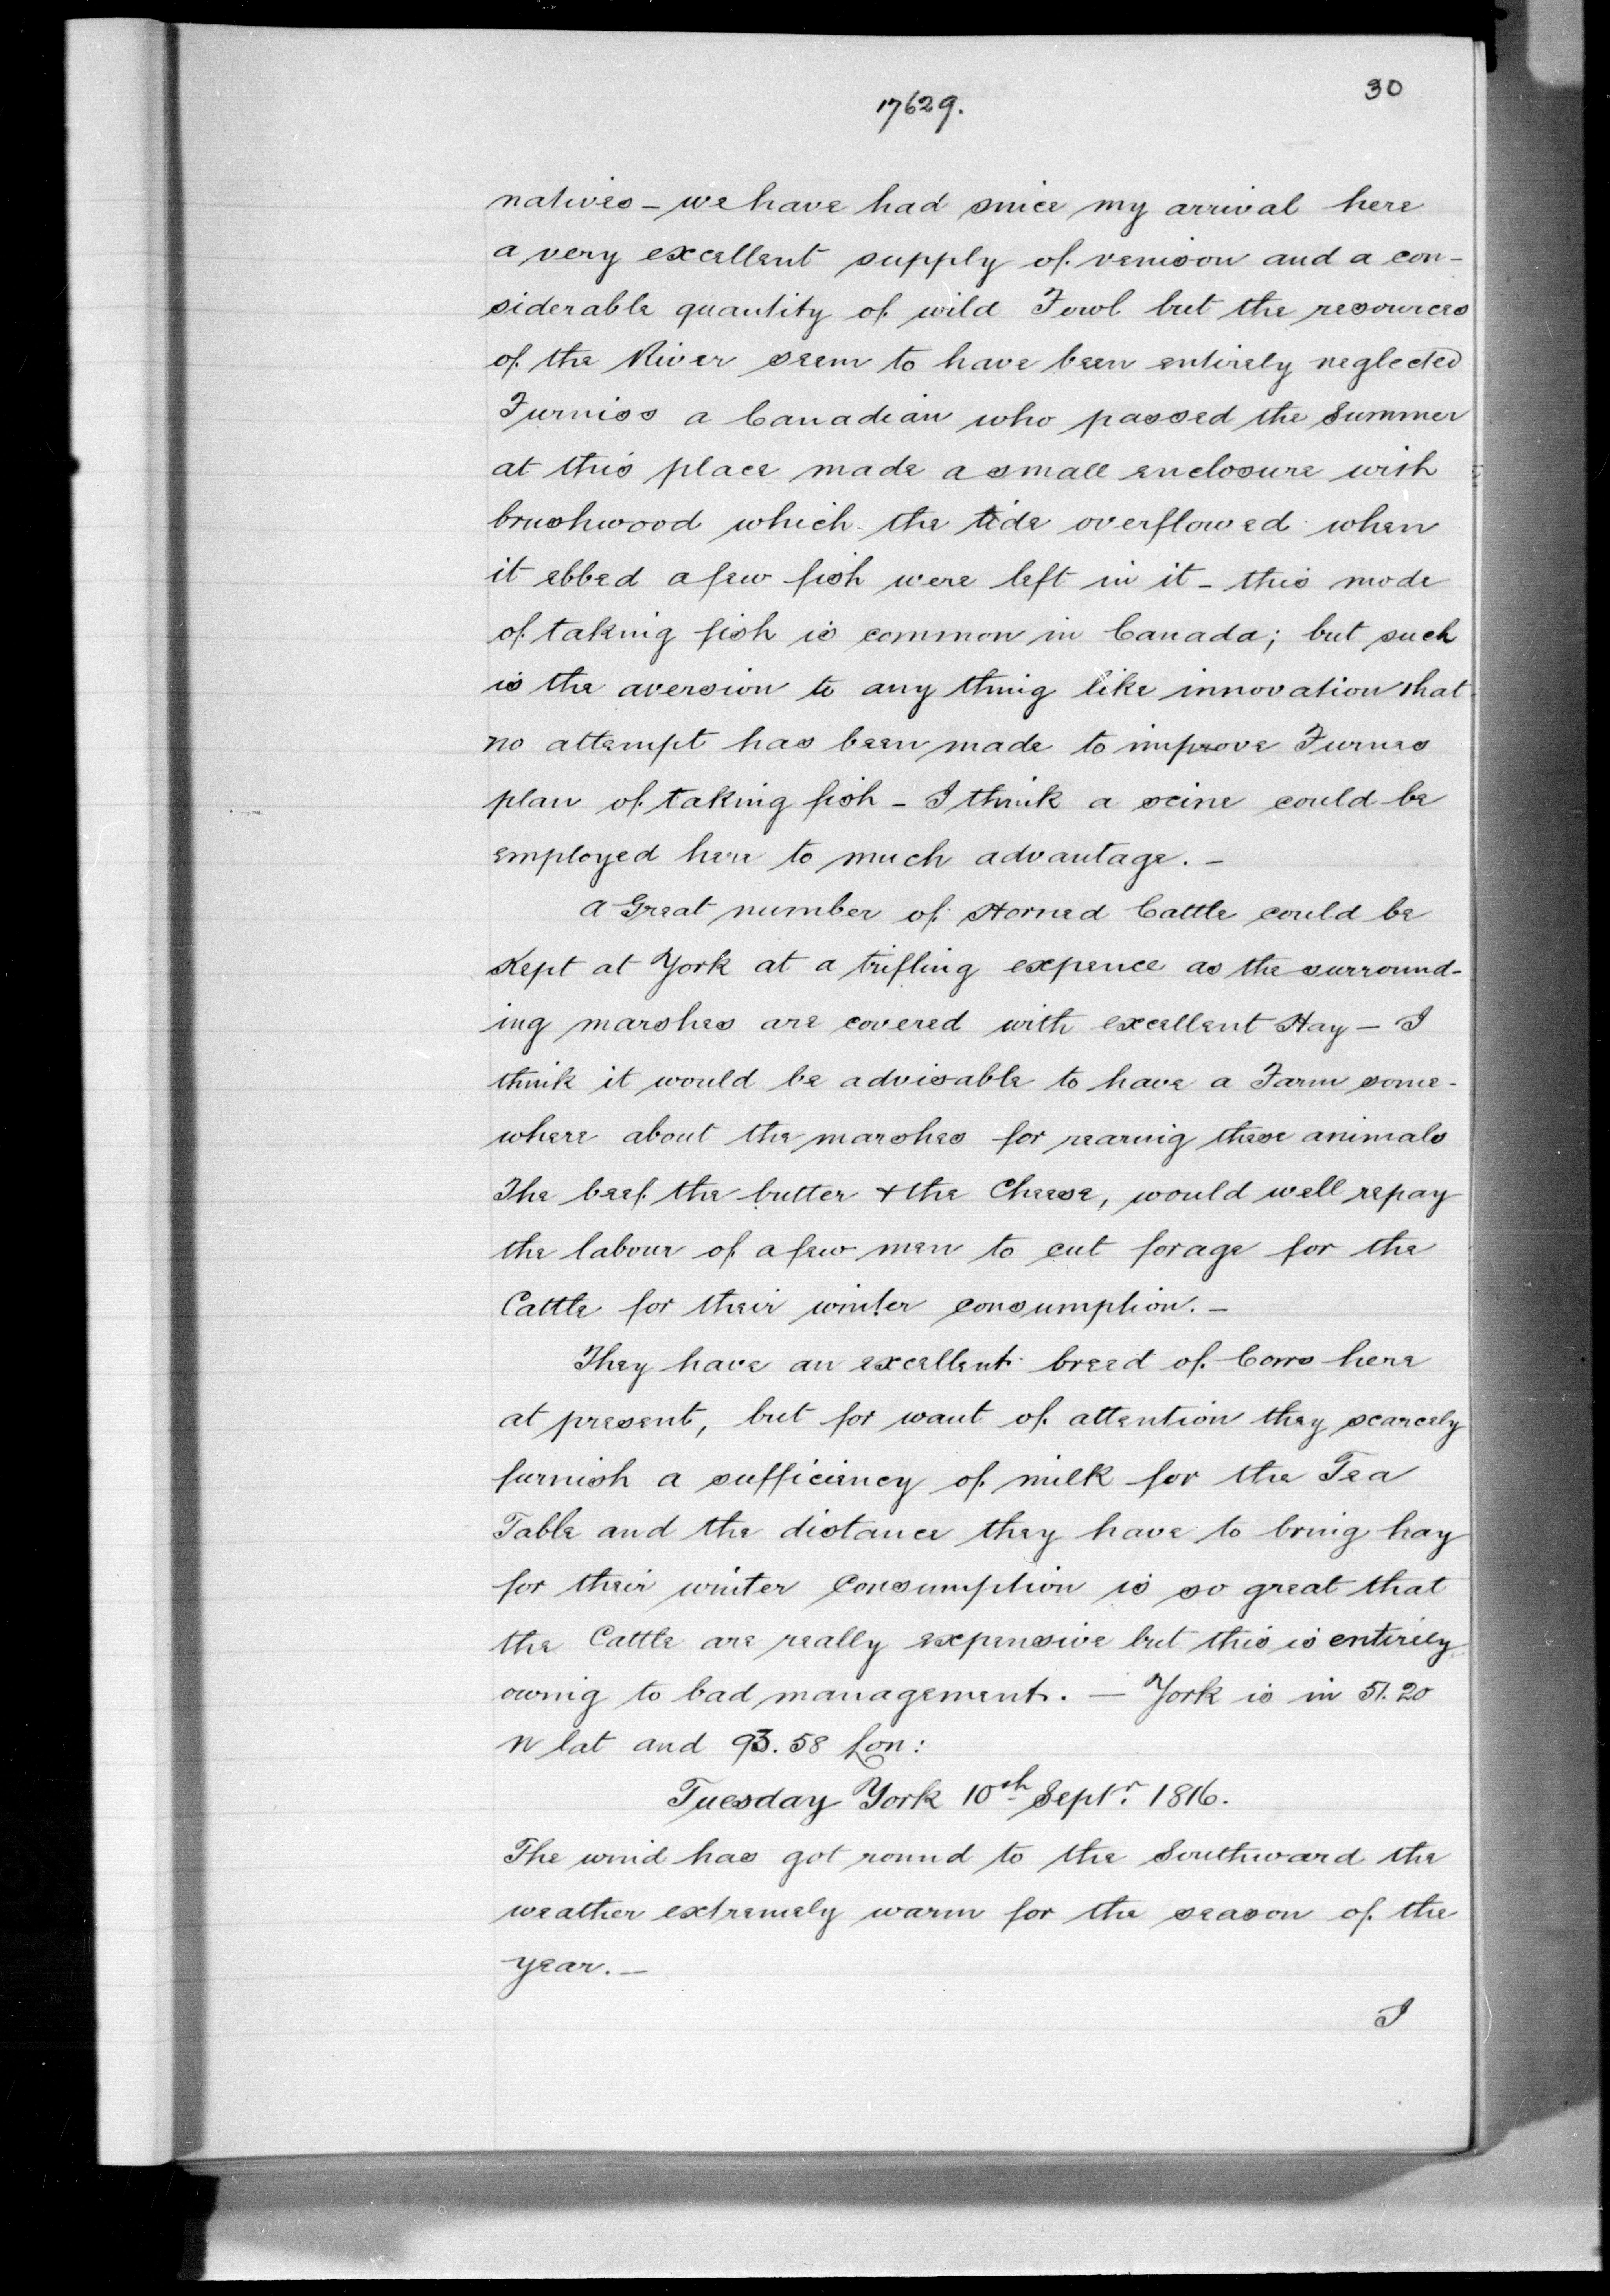 30
17629.
natives - we have had since my arrival here
a very excellent supply of venison and a con-
siderable quantity of wild Fowl but the resources
of the River seem to have been entirely neglected
Furniss a Canadian who passed the Summer
at this place made a small enclosure with
brushwood which the tide overflowed when
it ebbed a few fish were left in it - this mode
of taking fish is common in Canada; but such
is the aversion to any thing like innovation that
no attempt has been made to improve Furnes
plan of taking fish - I think a seine could be
employed here to much advantage. -
A Great number of Horned Cattle could be
Kept at York at a trifling expence as the surround-
ing marshes are covered with excellent Hay - I
think it would be advisable to have a Farm some-
where about the marshes for rearing these animals
The beef the butter + the Cheese, would well repay
the labour of a few men to cut forage for the
Cattle for their winter consumption. -
They have an excellent breed of Cows here
at present, but for want of attention they scarcely
furnish a sufficiency of milk for the Tea
Table and the distance they have to bring hay
for their winter Consumption is so great that
the Cattle are really expensive but this is entirely
owing to bad management. - York is in 51. 20
N lat and 93. 58 Lon:
Tuesday York 10th Septr. 1816.
The wind has got round to the Southward the
weather extremely warm for the season of the
year. -
I